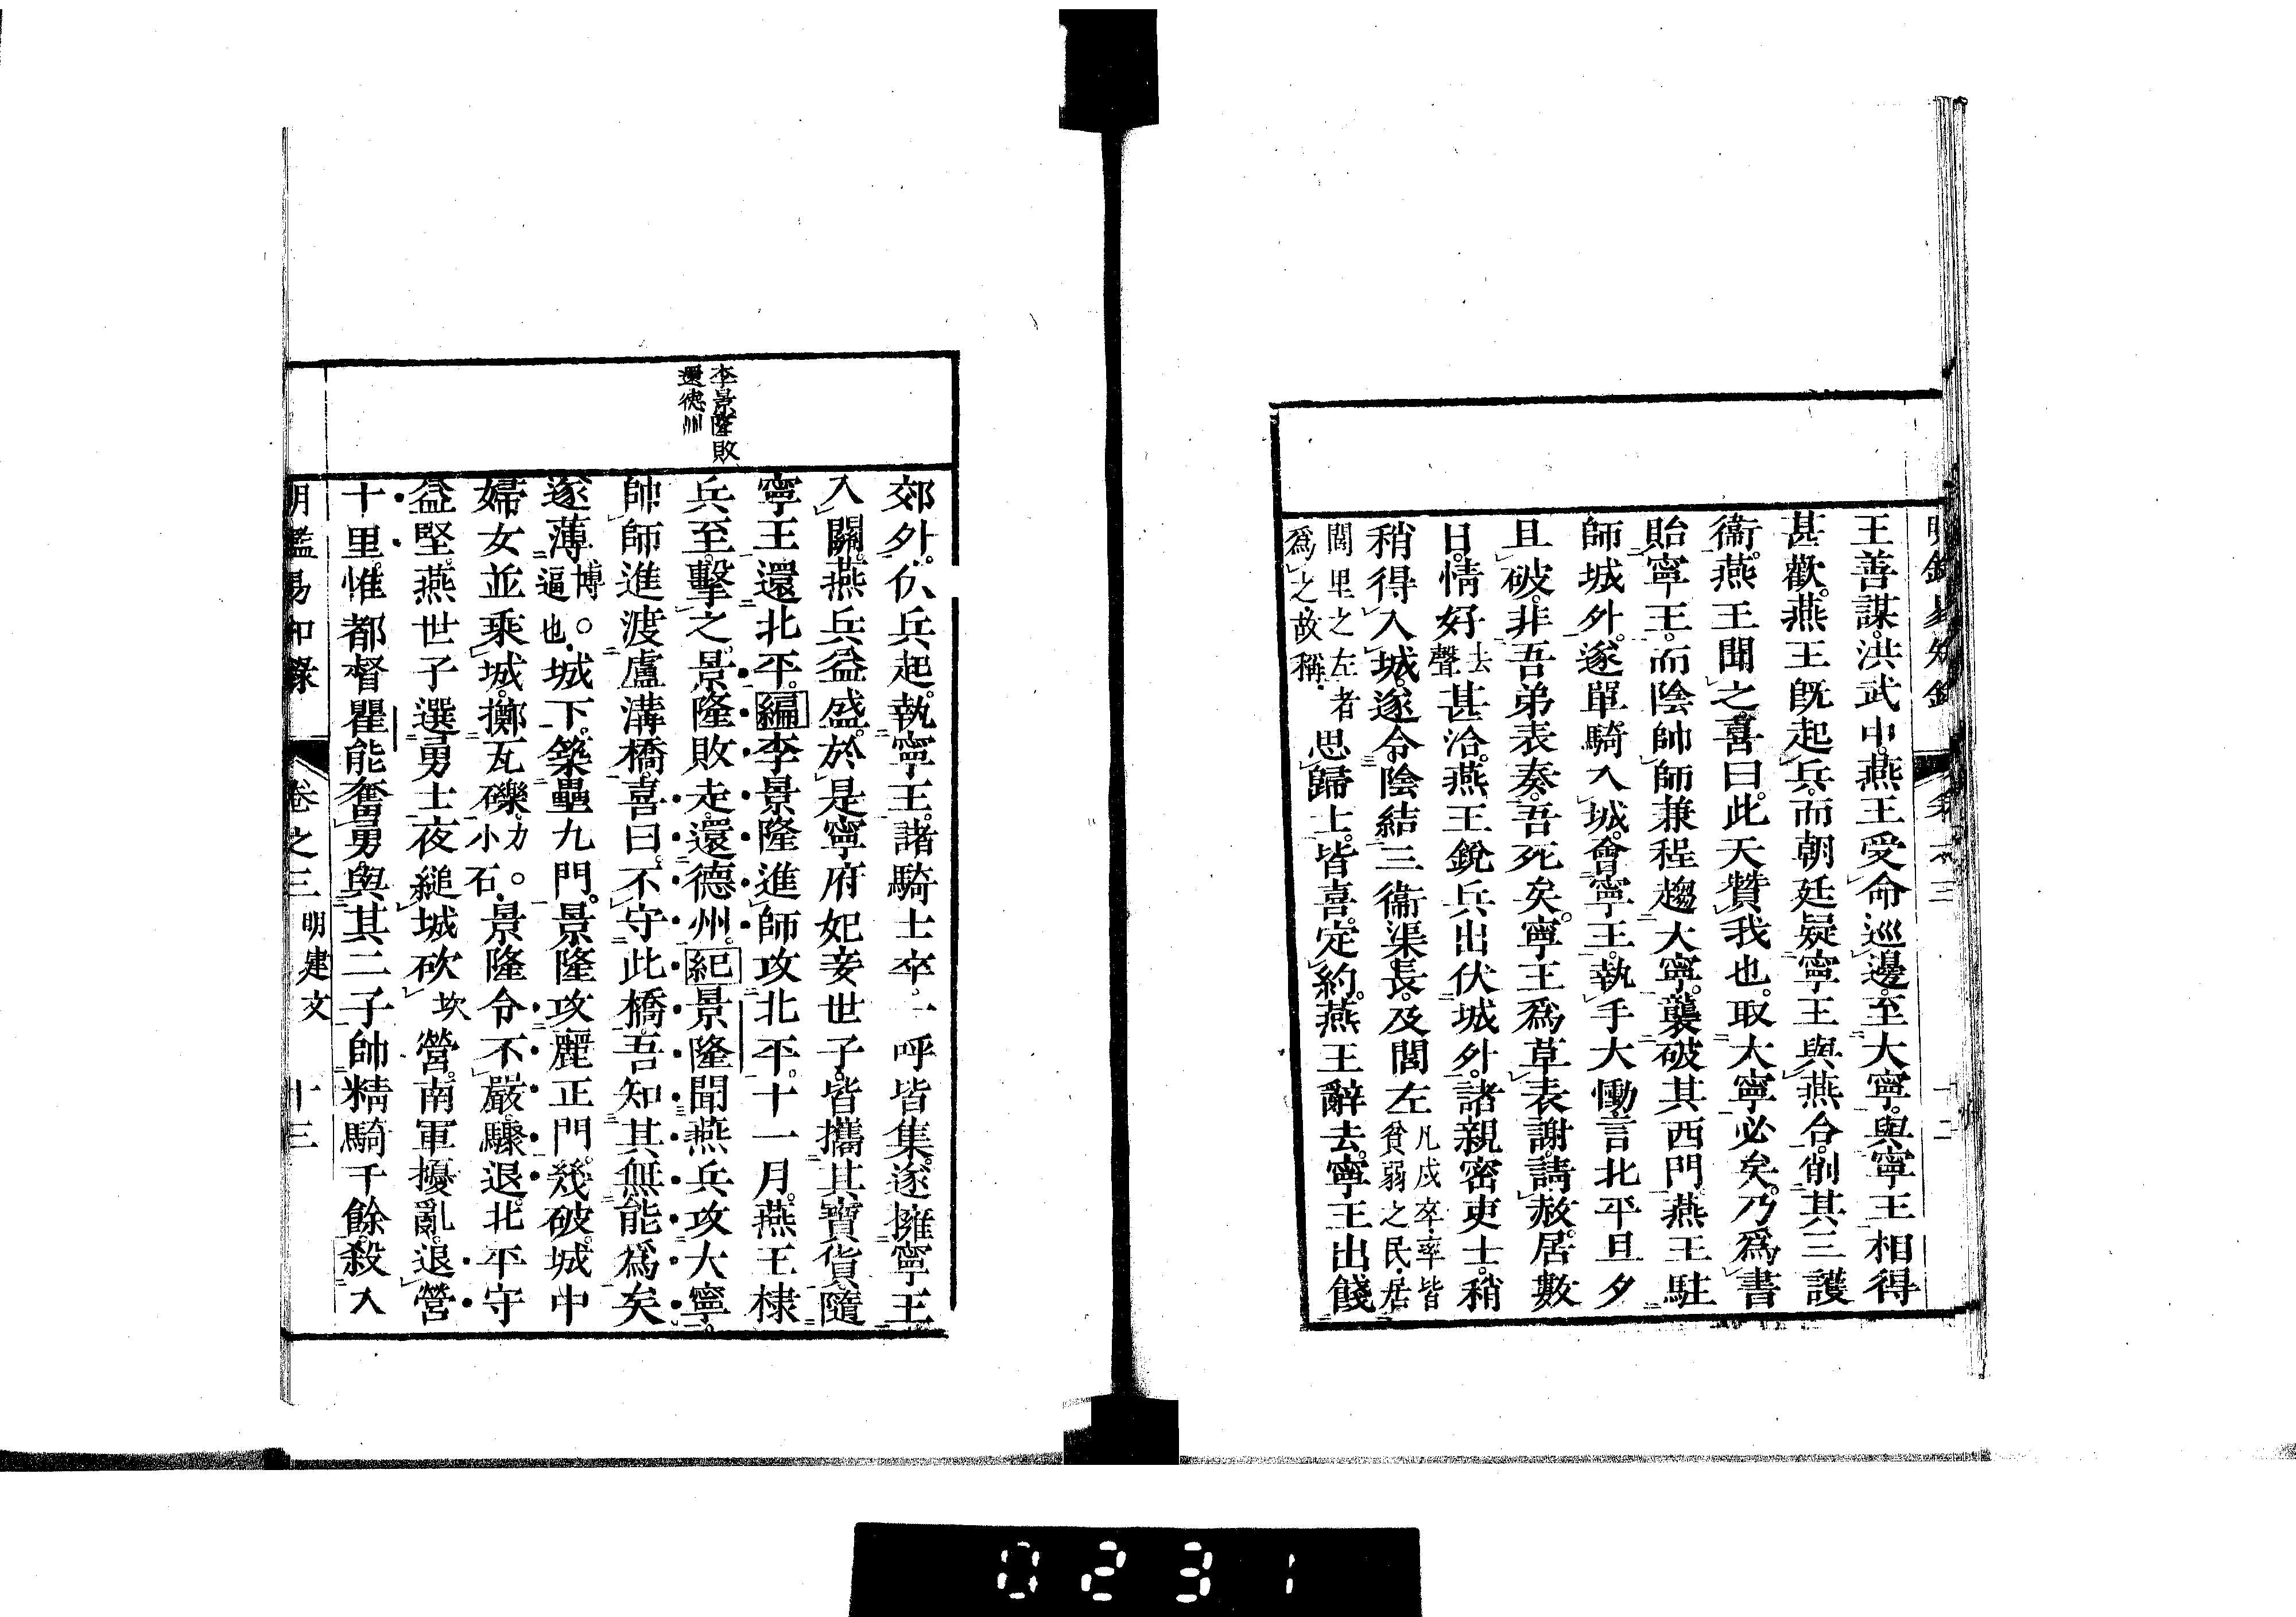 王善謀。洪武中。燕王受命巡邊。至大寧。與寧王相得
甚歡。燕王既起兵。而朝廷疑寧王與燕合。削其三護
衞。燕王聞之。喜曰。此天贊我也。取大寧必矣。乃爲書
貽寧王。而陰帥師兼程趨大寧。襲破其西門。燕王駐
師城外。遂單騎入城。會寧王。執手大慟。言北平旦夕
且破。非吾弟表奏。吾死矣。寧王爲草表謝。請赦。居數
日。情好去聲甚洽。燕王銳兵出伏城外。諸親密吏士。稍
稍得入城。遂令陰結三衞渠長。及閭左凡戍卒。率皆貧弱之民。居
閭里之左者爲之。故稱。思歸士。皆喜。定約。燕王辭去。寧王出餞
李景隆敗
還德州
郊外。伏兵起。執寧王。諸騎士卒。一呼皆集。遂擁寧王
入關。燕兵益盛。於是寧府妃妾世子。皆攜其寶貨。隨
寧王還北平。編李景隆進師攻北平。十一月。燕王棣
兵至。擊之。景隆敗走。還德州。紀景隆聞燕兵攻大寧。
帥師進渡盧溝橋。喜曰。不守此橋。吾知其無能爲矣
遂薄博。逼也。城下。築壘九門。景隆攻麗正門。幾破。城中
婦女並乘城。擲瓦礫力。小石。景隆令不嚴。驟退。北平守
益堅。燕世子選勇士夜縋城砍坎營。南軍擾亂。退營
十里。惟都督瞿能奮勇。與其二子帥精騎千餘。殺入
明鑑易知錄 卷之三 明建文 十三